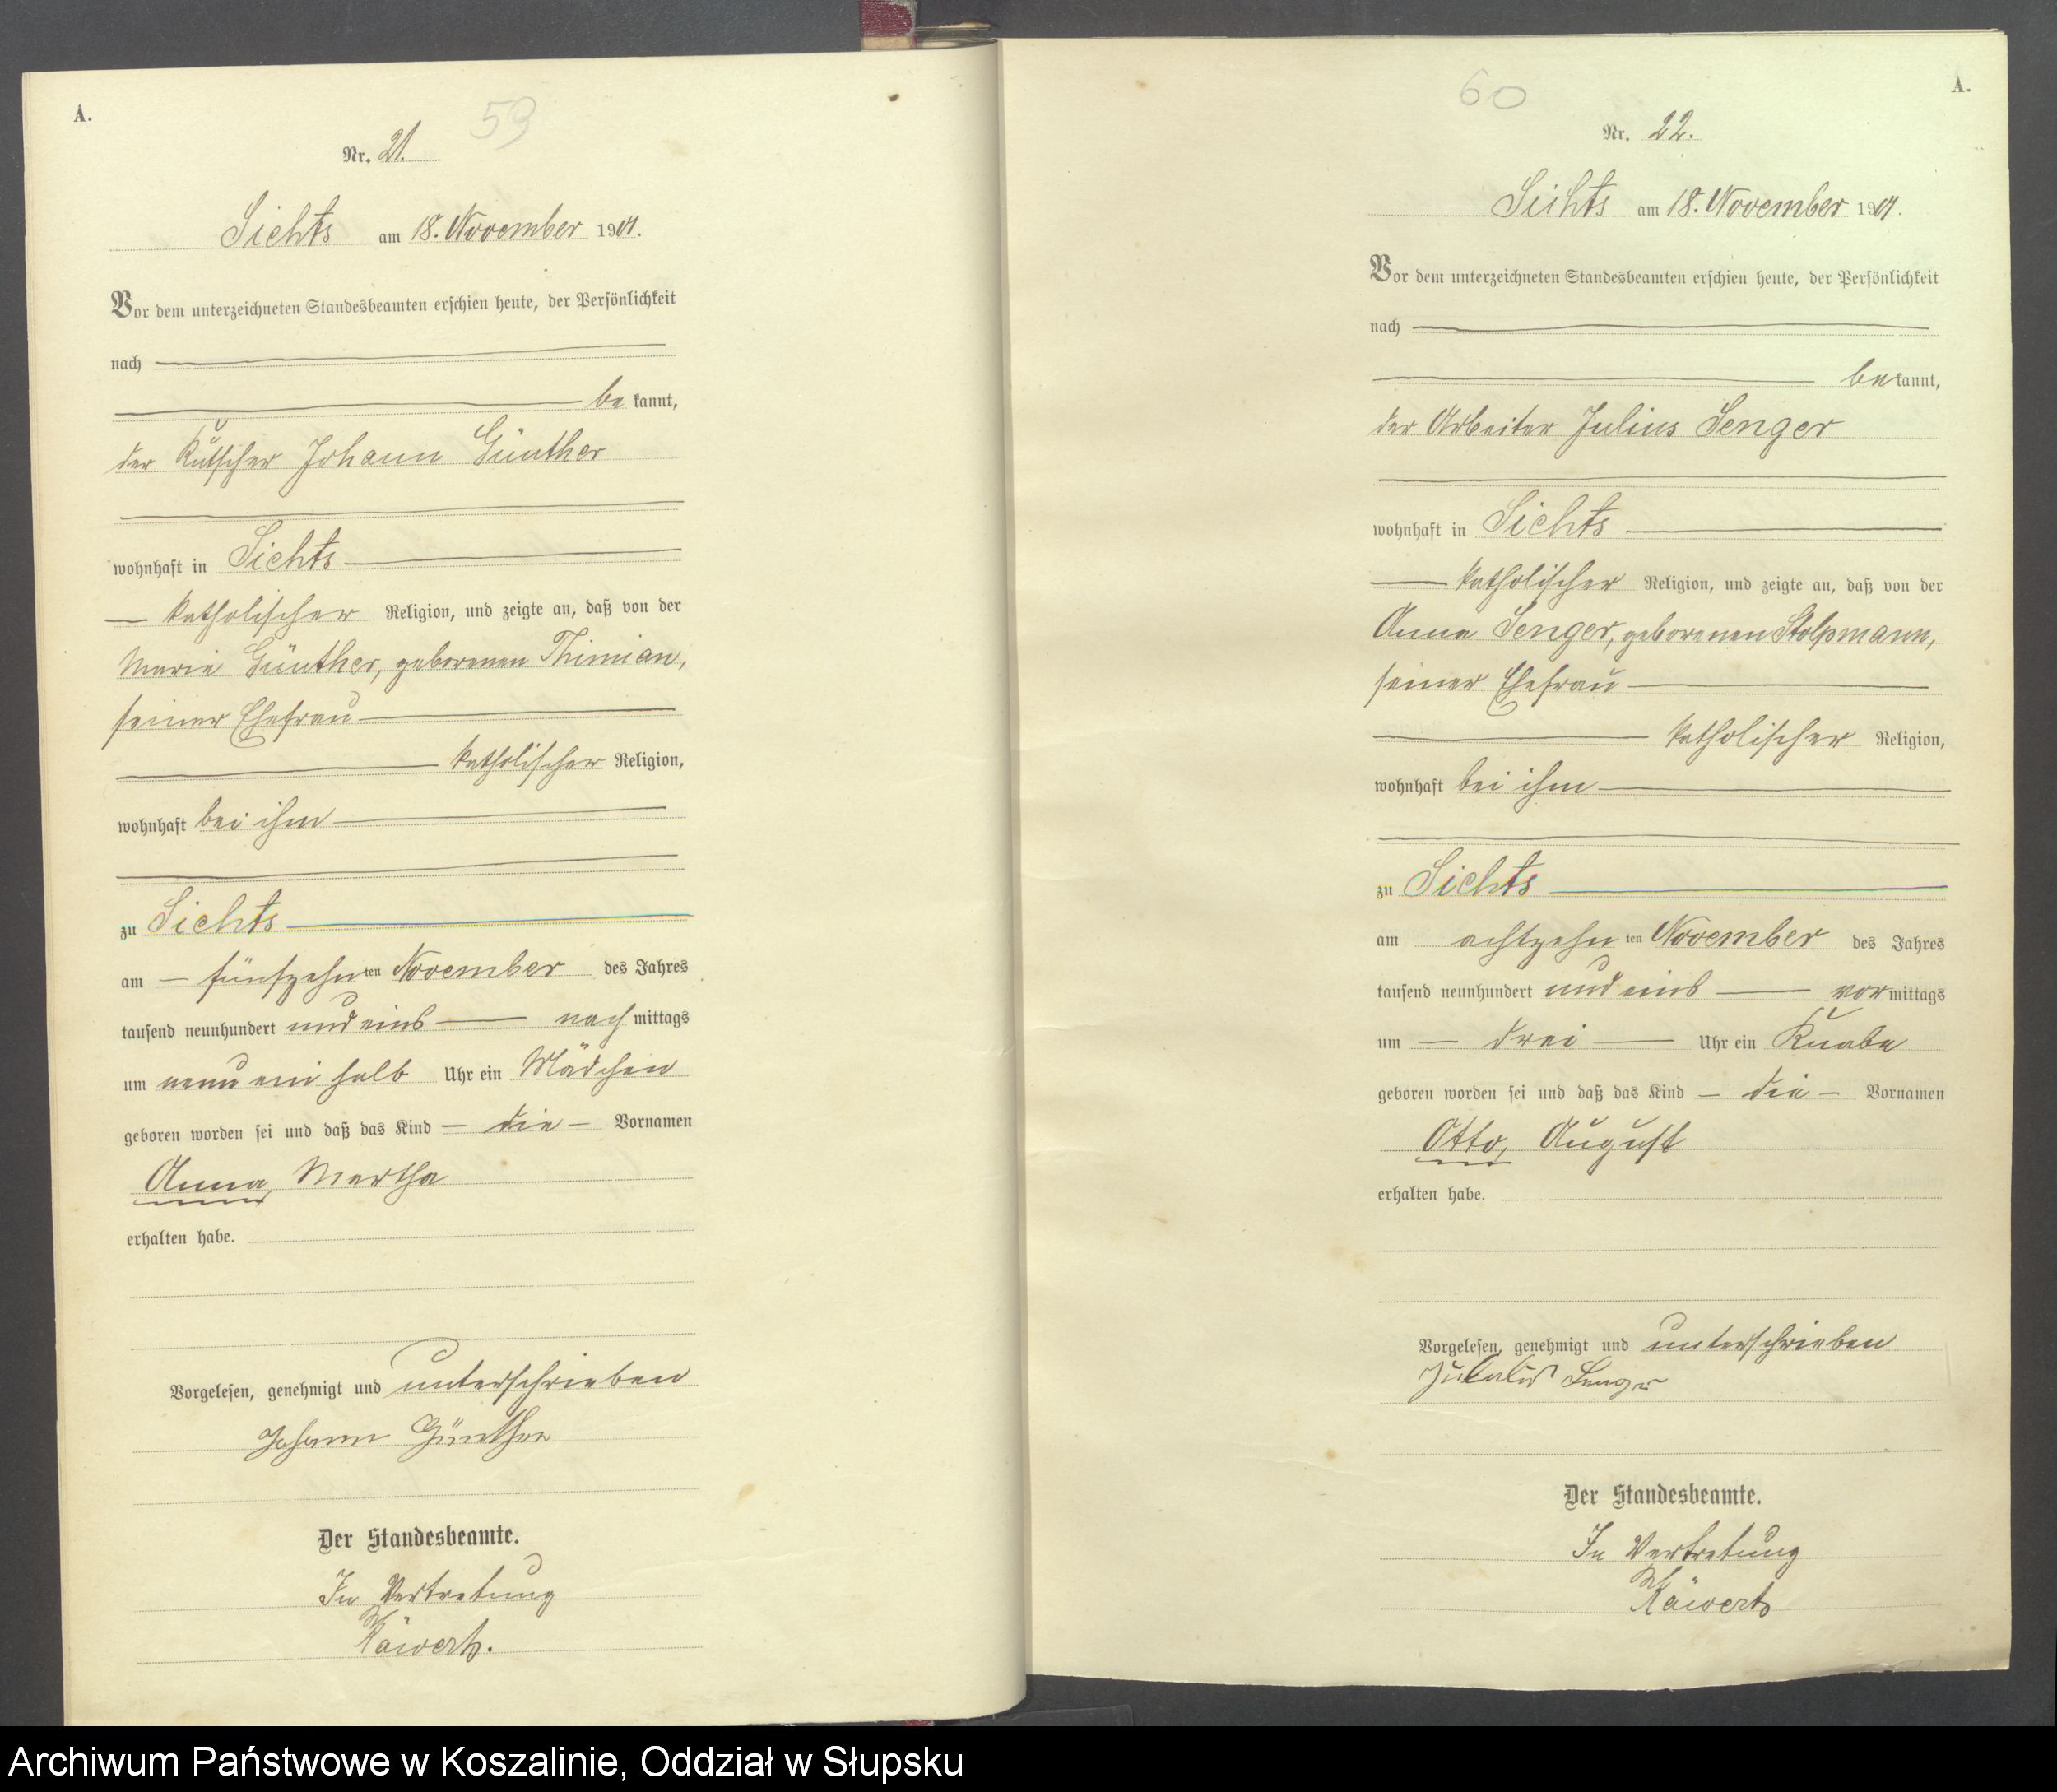 A.
59
Nr. 21.
Sichts am 18. November 1901.
Vor dem unterzeichneten Standesbeamten erschien heute, der Persönlichkeit
nach
be kannt,
der Kutscher Johann Günther
wohnhaft in Sichts
katholischer Religion, und zeigte an, daß von der
Marie Günther, geborenen Thimian,
seiner Ehefrau
katholischer Religion,
wohnhaft bei ihm
zu Sichts
am fünfzehn ten November des Jahres
tausend neunhundert und eins nach mittags
um neun ein halb Uhr ein Mädchen
geboren worden sei und daß das Kind die Vornamen
Anna, Martha
erhalten habe.
Vorgelesen, genehmigt und unterschrieben
Johann Günther
Der Standesbeamte.
In Vertretung
60
A.
Nr. 22.
Sichts am 18. November 1901.
Vor dem unterzeichneten Standesbeamten erschien heute, der Persönlichkeit
nach
be kannt,
der Arbeiter Julius Senger
wohnhaft in Sichts
katholischer Religion, und zeigte an, daß von der
Anna Senger, geborenen Stolpmann,
seiner Ehefrau
katholischer Religion,
wohnhaft bei ihm
zu Sichts
am achtzehn ten November des Jahres
tausend neunhundert und eins vor mittags
um drei Uhr ein Knabe
geboren worden sei und daß das Kind die Vornamen
Otto, August
erhalten habe.
Vorgelesen, genehmigt und unterschrieben
Senger
Der Standesbeamte.
In Vertretung
Archiwum Państwowe w Koszalinie, Oddział w Słupsku